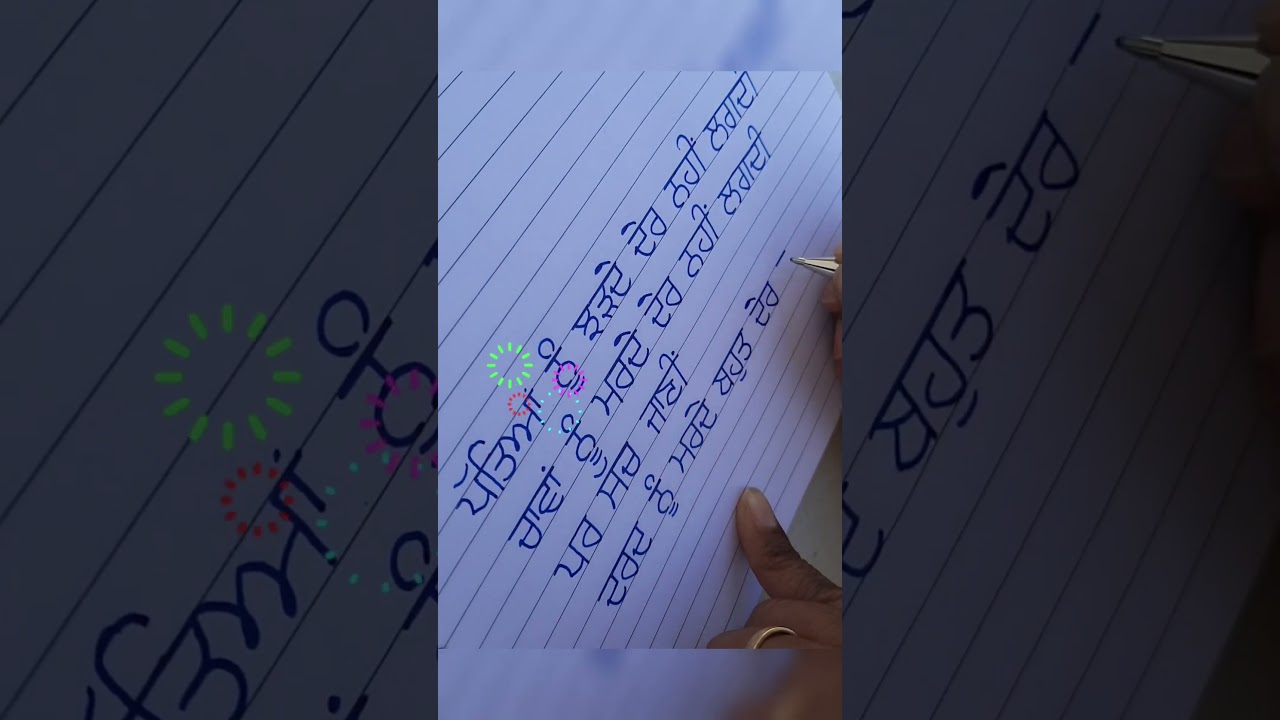 ਪੱਤਿਆਂ ਨੂੰ ਝੜਦੇ ਦੇਰ ਨਹੀਂ ਲਗਦੀ
ਚਾਵਾਂ ਨੂੰ ਮਰਦੇ ਦੇਰ ਨਹੀਂ ਲਗਦੀ
ਪਰ ਸੱਚ ਜਾਣੀਂ
ਦਰਦ ਨੂੰ ਮਰਦੇ ਬਹੁਤ ਦੇਰ